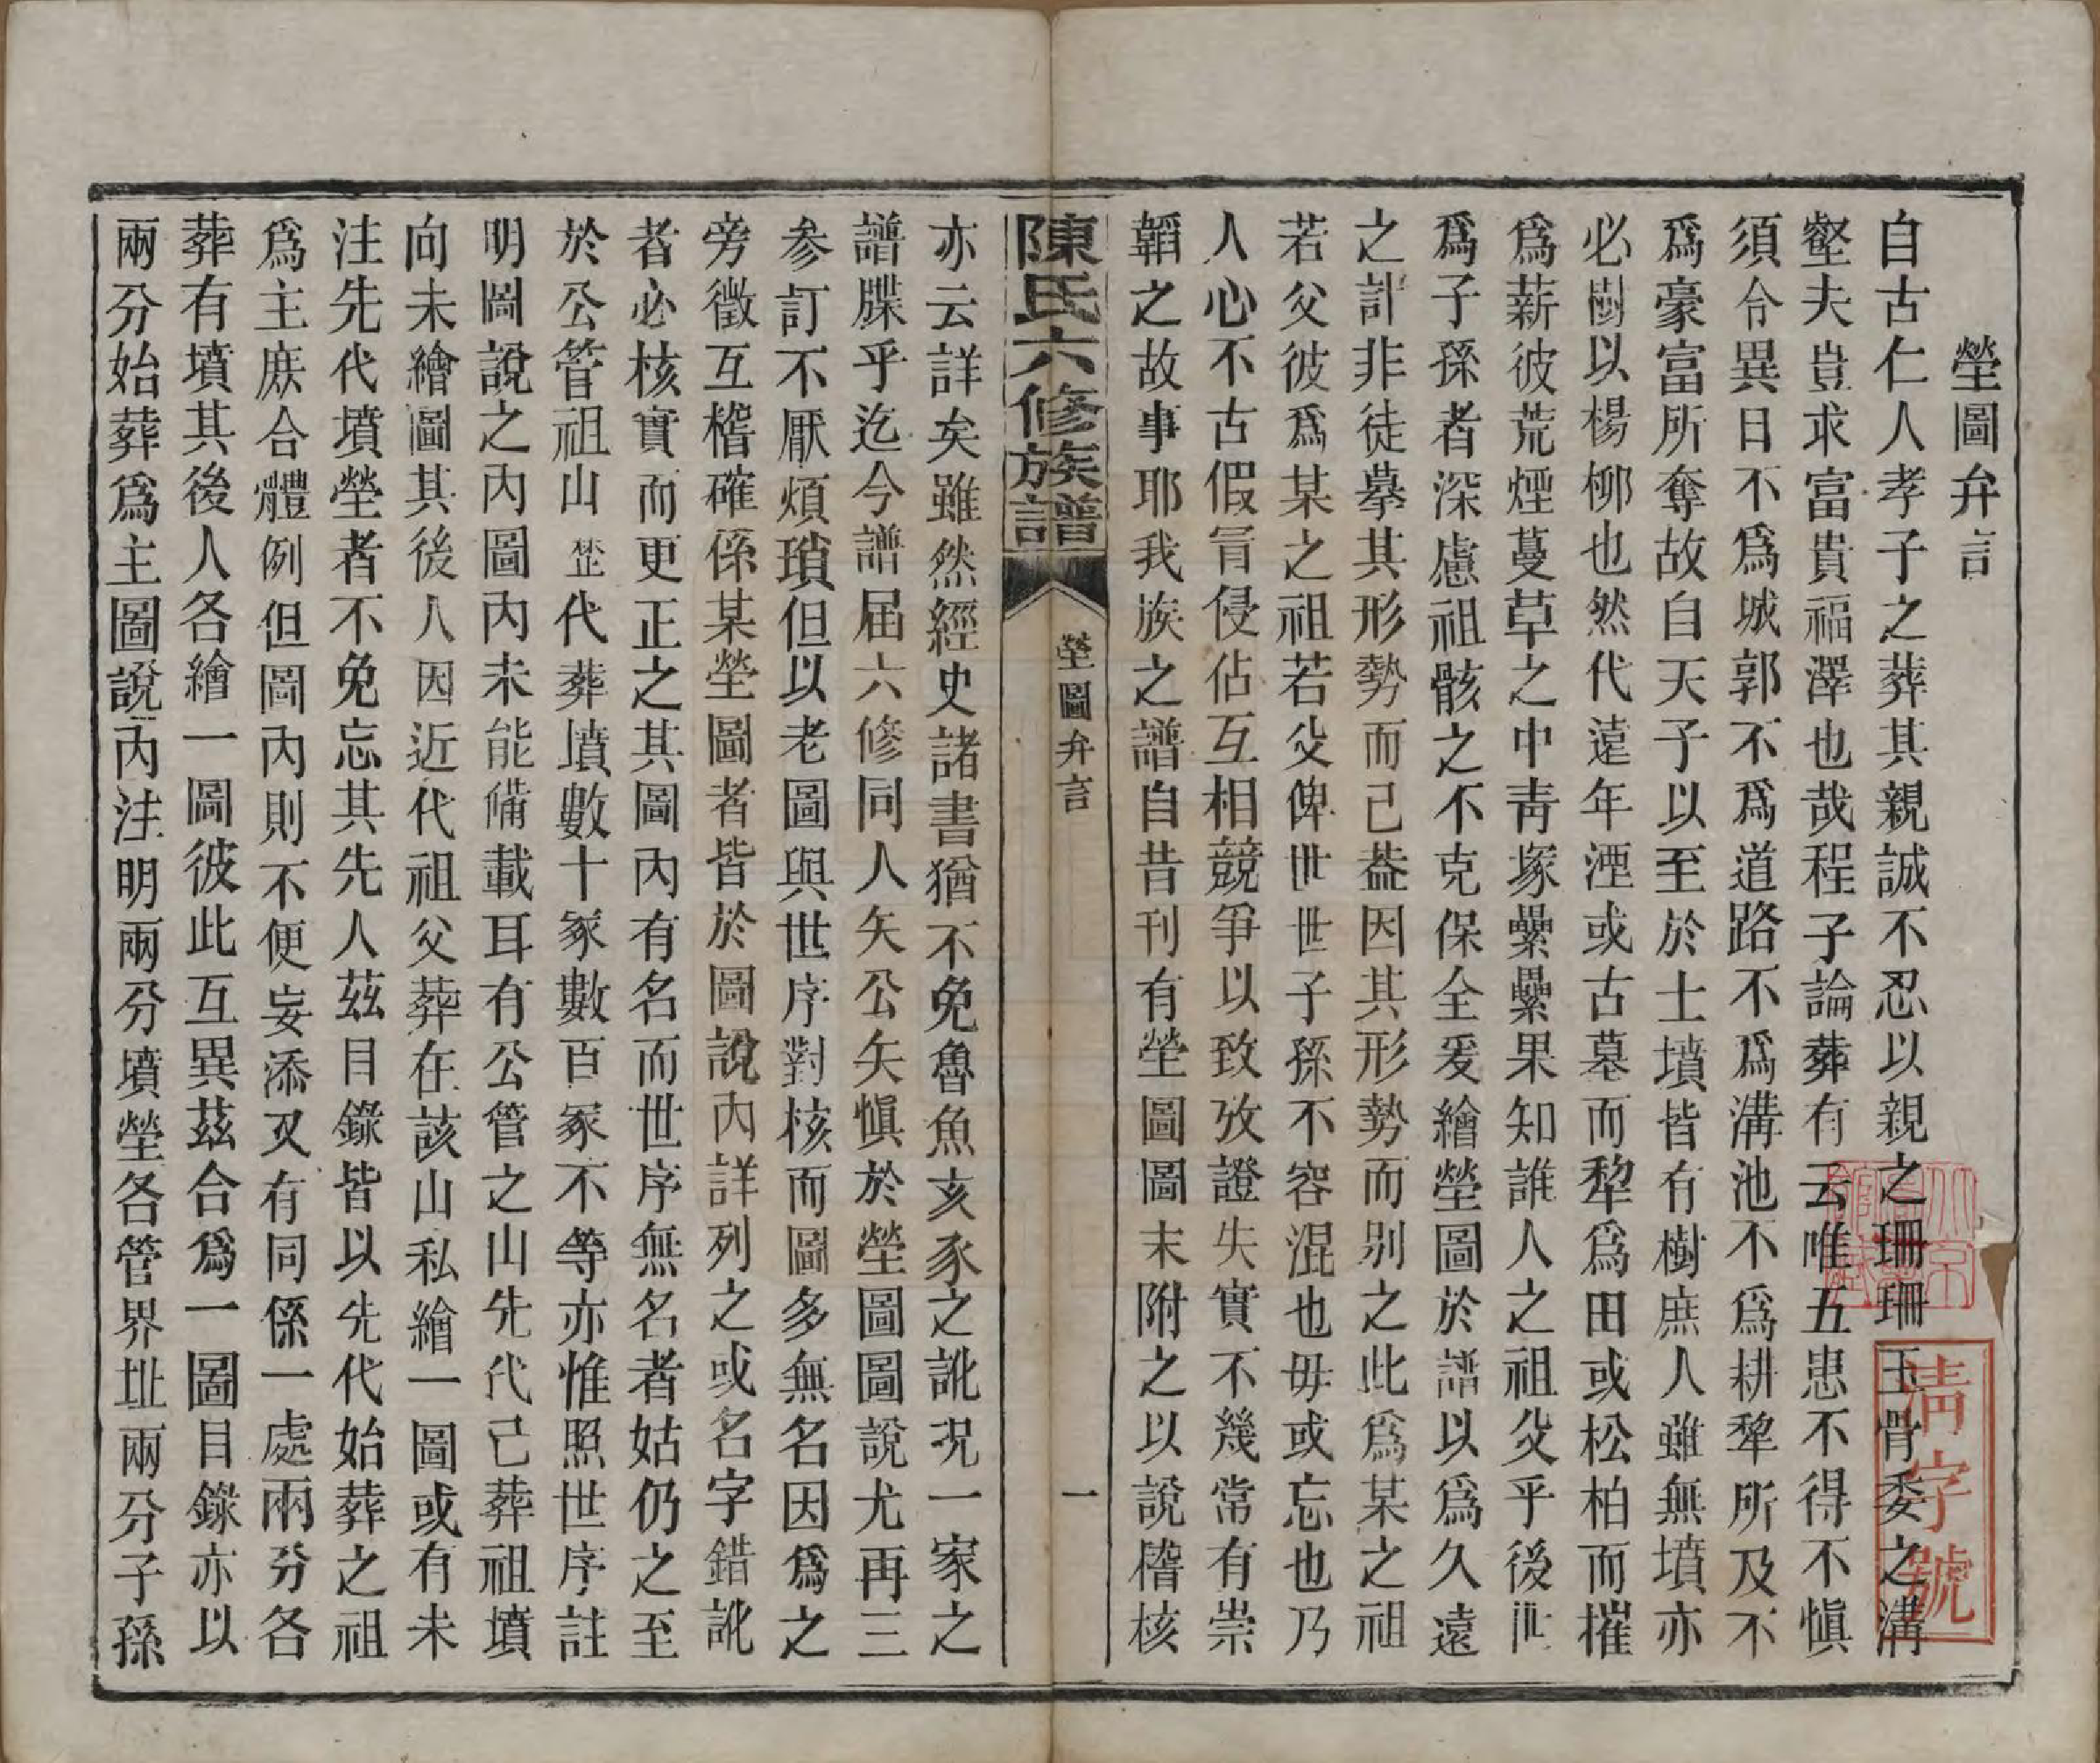 塋圖弁言
自古仁人孝子之葬其親誠不忍以親之珊珊玉骨委之溝
壑夫豈求富貴福澤也哉程子論葬有云唯五患不得不愼
須令異日不爲城郭不爲道路不爲溝池不爲耕犂所及不
爲豪富所奪故自天子以至於士墳皆有樹庶人雖無墳亦
必樹以楊柳也然代遠年湮或古墓而犂爲田或松柏而摧
爲薪彼荒煙蔓草之中靑塚纍纍果知誰人之祖父乎後世
爲子孫者深慮祖骸之不克保全爰繪塋圖於譜以爲久遠
之計非徒摹其形勢而已葢因其形勢而别之此爲某之祖
若父彼爲某之祖若父俾世世子孫不容混也毋或忘也乃
人心不古假冒侵佔互相競爭以致攷證失實不幾常有崇
韜之故事耶我族之譜自昔刊有塋圖圖末附之以說稽核
陳氏六修族譜
塋圖弁言
一
亦云詳矣雖然經史諸書猶不免魯魚亥豕之訛况一家之
譜牒乎迄今譜届六修同人矢公矢愼於塋圖圖說尤再三
参訂不厭煩瑣但以老圖與世序對核而圖多無名因爲之
旁徵互稽確係某塋圖者皆於圖說內詳列之或名字錯訛
者必核實而更正之其圖內有名而世序無名者姑仍之至
於公管祖山歷代葬墳數十冢數百冢不等亦惟照世序註
明圖說之內圖內未能備載耳有公管之山先代已葬祖墳
向未繪圖其後人因近代祖父葬在該山私繪一圖或有未
注先代墳塋者不免忘其先人茲目錄皆以先代始葬之祖
爲主庶合體例但圖內則不便妄添又有同係一處兩分各
葬有墳其後人各繪一圖彼此互異茲合爲一圖目錄亦以
兩分始葬爲主圖說內注明兩分墳塋各管界址兩分子孫
淸字號